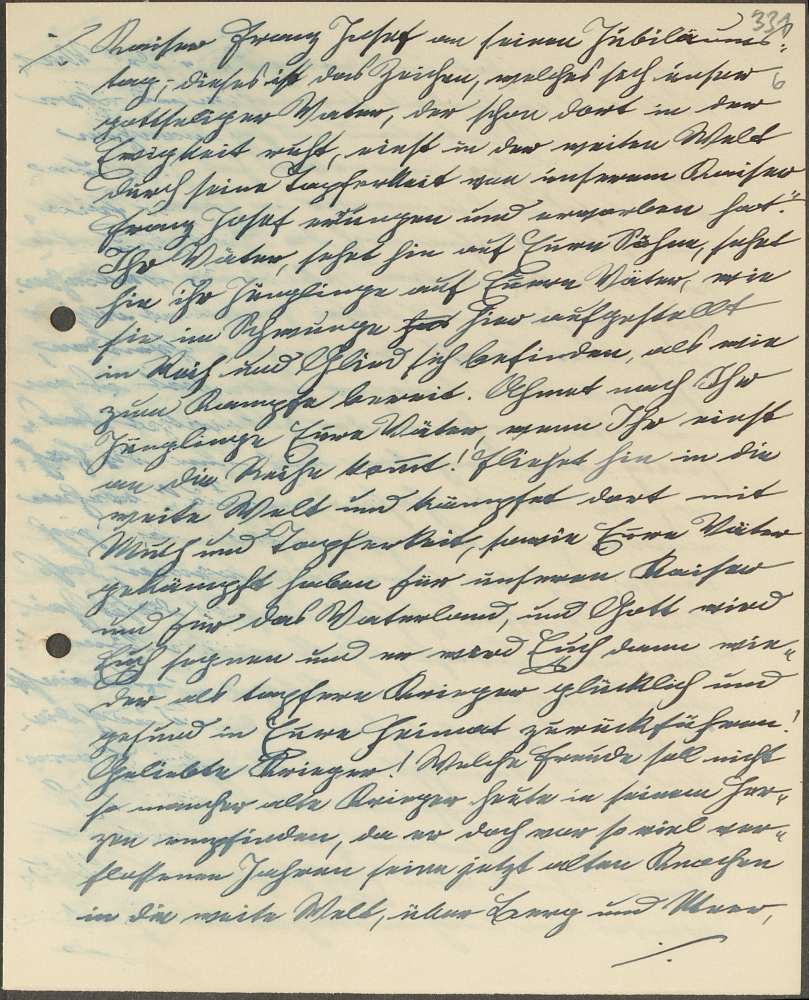 339
6
./. Kaiser Franz Josef an seinem Jubiläums-
tag; dieses ist das Zeichen, welches sich unser
gottseliger Vater, der schon dort in der
Ewigkeit ruht, einst in der weiten Welt
durch seine Tapferkeit von unserem Kaiser
Franz Josef errungen und erworben hat."
Ihr Väter, sehet hin auf Eure Söhne, sehet
hin ihr Jünglinge auf Euere Väter, wie
sie im Schwunge hier aufgestellt
in Reih und Glied sich befinden, als wie
zum Kampfe bereit. Ahmet nach Ihr
Jünglinge Eure Väter, wenn Ihr einst
an die Reihe kommt! Fliehet hin in die
weite Welt und kämpfet dort mit
Muth und Tapferkeit, sowie Eure Väter
gekämpft haben für unseren Kaiser
und für das Vaterland, und Gott wird
Euch segnen und er wird Euch dann wie-
der als tapfere Krieger glücklich und
gesund in Eure Heimat zurückführen!
Geliebte Krieger! Welche Freude soll nicht
so mancher alte Krieger heute in seinem Her-
zen empfinden, da er doch vor so viel ver-
flossenen Jahren seine jetzt alten Knochen
in die weite Welt, über Berg und Meer,
./.